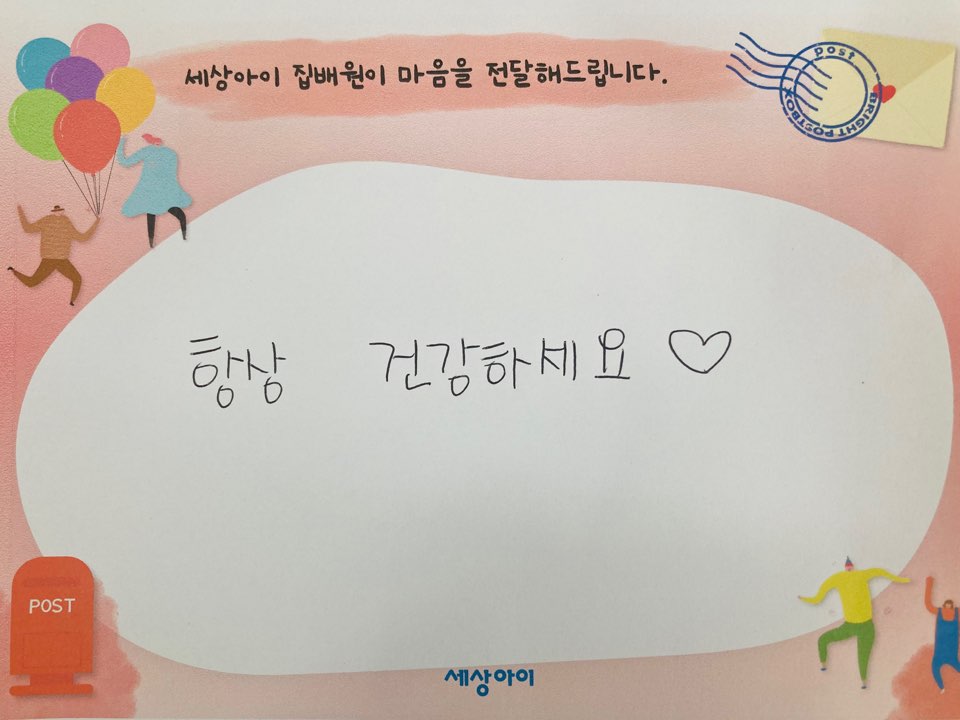 세상아이 집배원이 마음을 전달해드립니다.
post
BRIGHT POSTBOX
항상 건강하세요 ♡
POST
세상아이